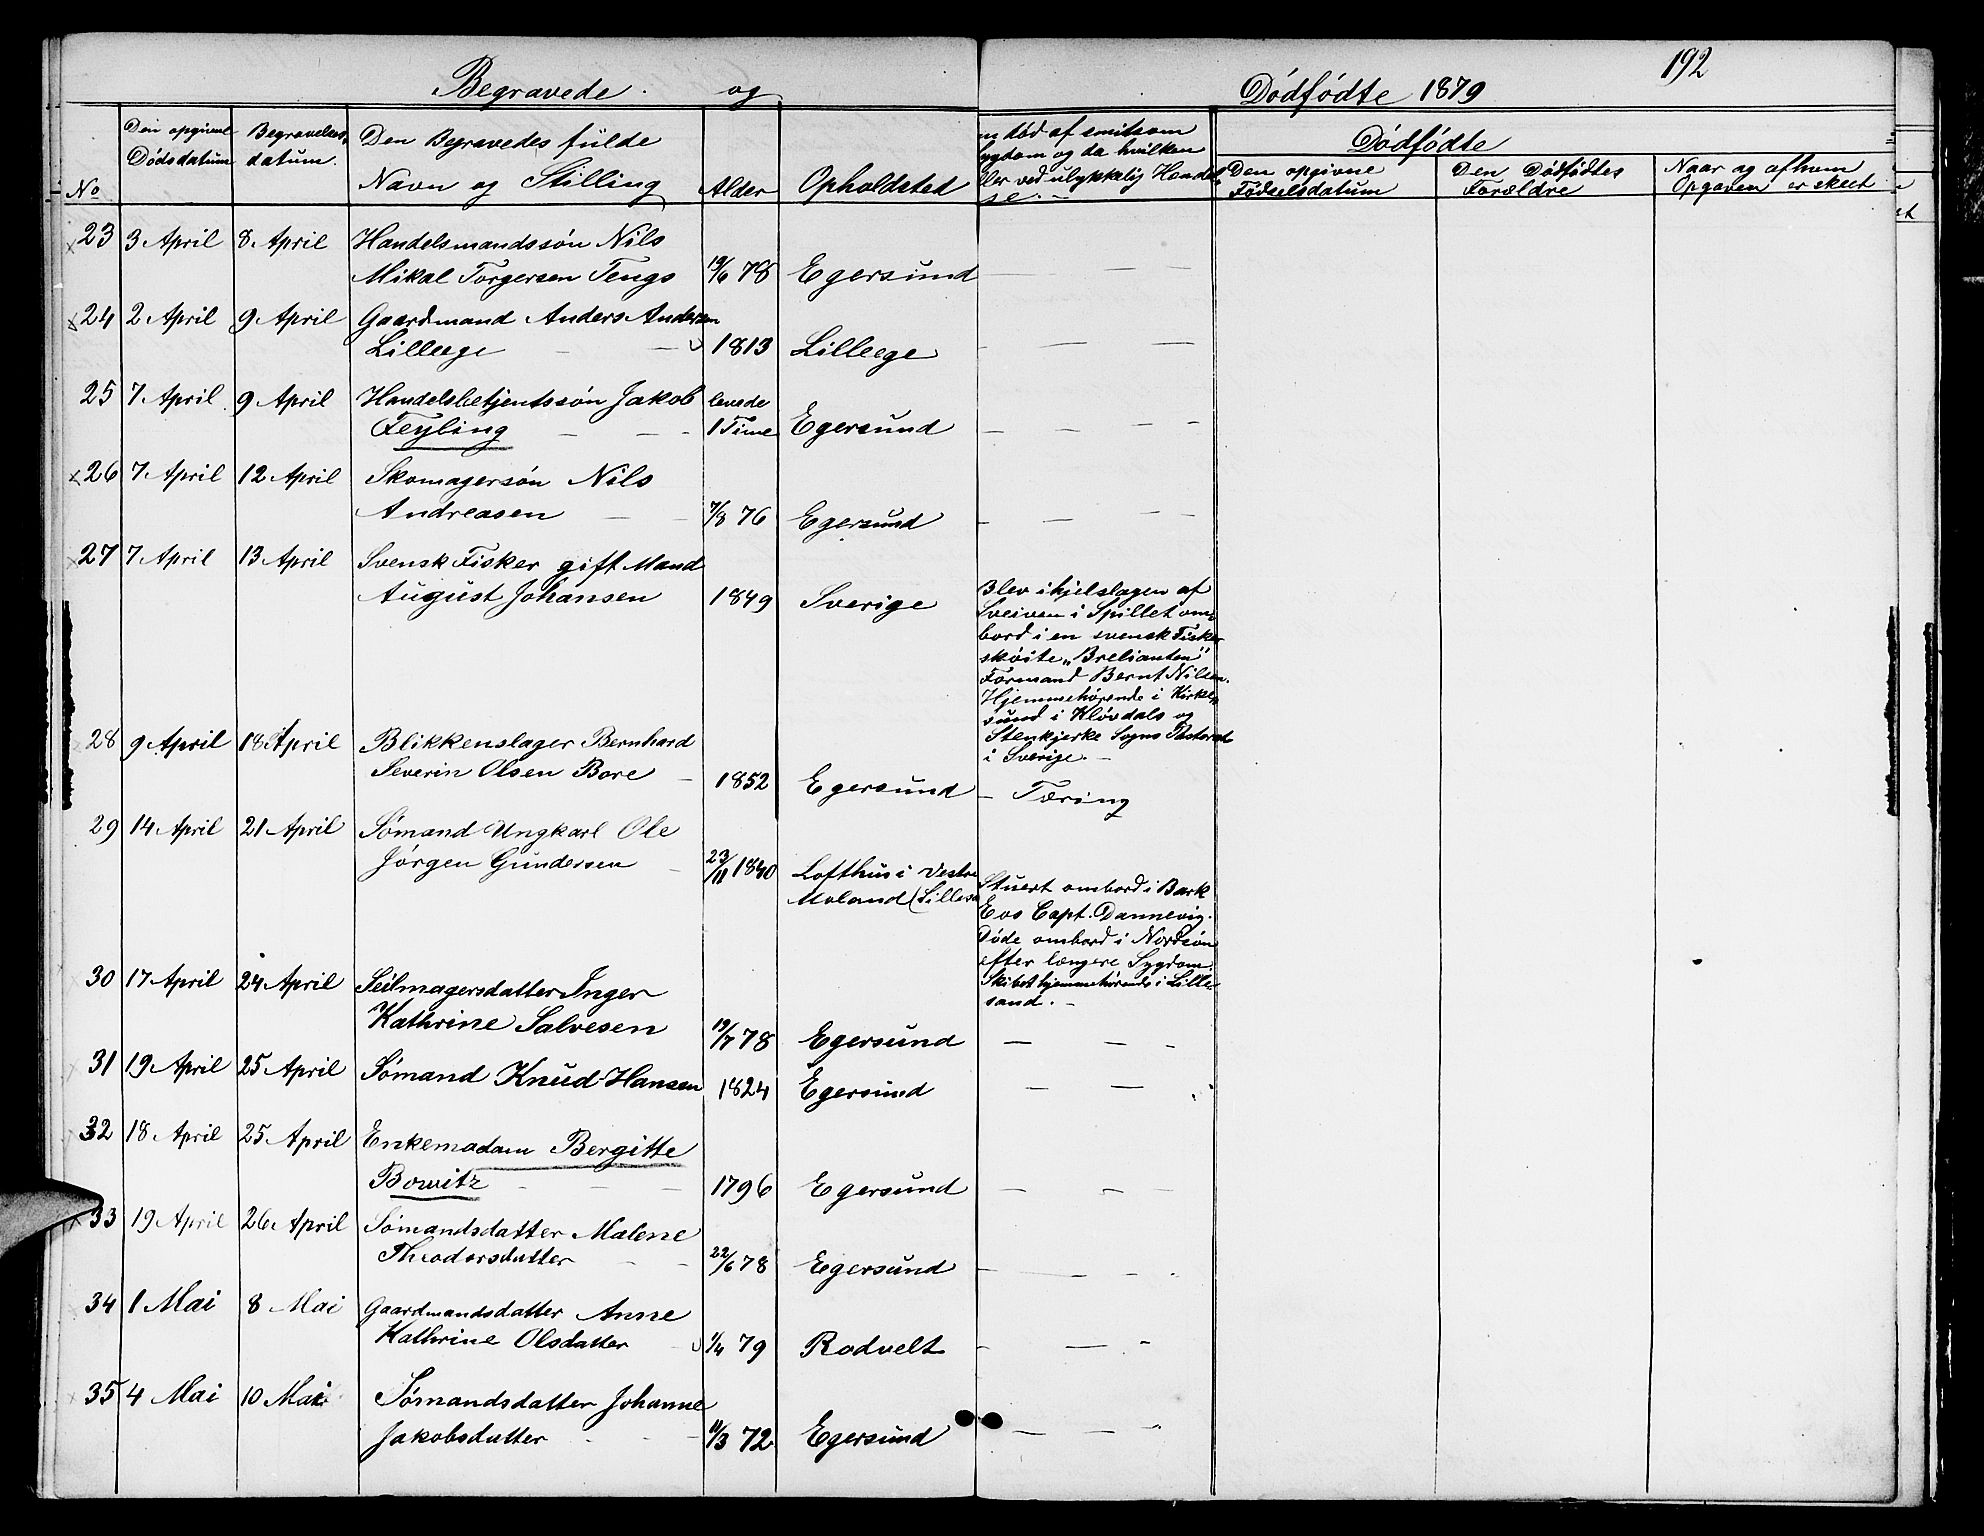 192
Begravede og Dödfödte 1879
No
Den opgivne Dödsdatum
Begravelses datum.
Den Begravedes fülde
Navn og Stilling
Alder
Opholdsted
m död af smitsom
sygdom og da hvilken
ller ved ulykkelig Hændel
se. –
Dödfödte
Den opgivne
Födselsdatum
Den Dödfödtes
Forældre
Naar og af hvem
Opgaven er skeet
23 3 April 8 April Handelsmandssön Nils
Mikal Torgersen Tengs 19/6 78 Egersund – – –
24 2 April 9 April Gaardmand Anders Andersen
Lilleege – – 1813 Lilleege – – – –
25 7 April 9 April Handelsbetjentssön Jakob levede
Feyling – – – 1 Time Egersund – – – –
26 7 April 12 April Skomagersön Nils
Andreasen – – 7/8 76 Egersund – – – –
27 7 April 13 April Svensk Fisker gift Mand
August Johansen 1849 Sverige
Blev ihjelslagen af
Sveiven i Spillet om-
bord i en svensk Fisker
sköite "Brelianten"
Formand Bernt Nilsen.
Hjemmehörende i Kirke-
sund i Klövdals og
Stenkjerke Sogns Pastorat
i Sverige. –
28 9 April 18 April Blikkenslager Bernhard
Severin Olsen Bore – 1852 Egersund – Tæring
29 14 April 21 April Sömand Ungkarl Ole
Jörgen Gundersen – 23/11 1840 Lofthus i Vestre
Moland (Lillesa
Stuert ombord i Bark
Eos Capt. Dannevig.
Döde ombord i Nordsöen
efter længere Sygdom.
Skibet hjemmehörende i Lille-
sand. –
30 17 April 24 April Seilmagersdatter Inger
Kathrine Salvesen 19/7 78 Egersund – – –
31 19 April 25 April Sömand Knud Hansen 1824 Egersund – –
32 18 April 25 April Enkemadam Bergitte
Bowitz – – – 1796 Egersund – – –
33 19 April 26 April Sömandsdatter Malene
Theodorsdatter – – 22/6 78 Egersund – – – –
34 1 Mai 8 Mai Gaardmandsdatter Anne
Kathrine Olsdatter 1/4 79 Rodvelt – – –
35 4 Mai 10 Mai Sömandsdatter Johanne
Jakobsdatter – – 11/3 72 Egersund – – –